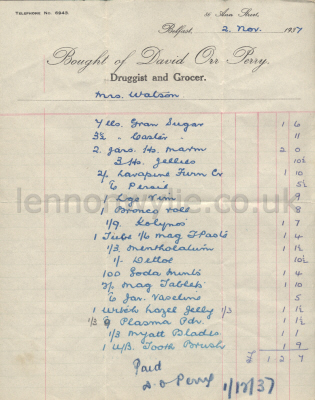 TELEPHONE No. 5943. Ann Street,
Belfast, 2 Nov. 1937
Bought of David Orr Perry.
Druggist and Grocer.
Mrs. Watson
7 lbs. Gran Sugar 1 6
3½ " Castor " 11
2 Jars. Ho. Marm 2 0
3 Ho. Jellies 10½
2/- Lavapine Furn Cr 1 10
6 Persil 5½
1 Vim 9
1 Bronco Roll 8
1/9. Kolynos 1 7
1 Tube 1/6 Mag T. Paste 1 4
1/3 Mentholatum 1 1½
1/- Dettol 10½
100 Soda Mints 1 4
2/- Mag Tablets 1 10
6 Jar. Vaseline 5
1 Witch Hazel Jelly 1/3 1 1½
1/3 Plasma Pdr. 1 1½
1/3 Myatt Blades 1 1
1 W/B. Tooth Brush 1 9
£ 1 2 7
Paid
D. O Perry 1/12/37